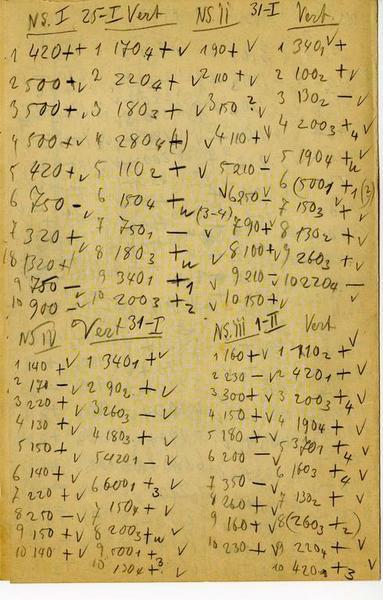 NS. I 25-I Vert NS. II 31-I Vert.
1 420++ 1 170₄ +v 190+v 1 340₁ v+
2 500+v 2 220₄ +v 2 110+v 2 100₂ +v
3 500+v 3 180₃ +v 3 150?v 3 130₂ -v
4 500+v 4 280₄(+) v 4 110+v 4 200₃ +₄v
5 420+v 5 110₂ +v 5 210- 5 190₄ +v
6 750-v 6 150₄ + v 6 250-v 6 (500₁ +1(2)
7 320+v 7 750₁ -v 7 90+v 7 150₃ +v
8 (320+) 8 180₃ +v 8 100+v 8 130₂ +v
9 750- 9 340₁ + 9 210- 9 260₃ +v
10 900-v 10 200₃ +₂ 10 150+v 10 220₄ -v
NS IV Vert 31-I NS. III 1-II Vert
1 140+v 1 340₁ +v 1 160+v 1 110₂ +v
2 170-v 2 90₂ +v 2 230-v 2 420₁ +v
3 220+v 3 260₃ -v 3 300+v 3 200₃ +₄v
4 130+v 4 180₃ +v 4 150+v 4 190₄ +v
5 150+v 5 420₁ -v 5 180+v
6 140+v 6 600₁ +₃v 6 200-v 6 160₃ +₄v
7 220+v 7 150₄ +v 7 350-v 7 130₂ +v
8 250-v 8 200₃ +v 8 260+v 8 (260₃ +₂)
9 150+v 9 500₁ +v 9 160+v 9 220₄ +v
10 140+v 10 130₄ +³v 10 230+v 10 420₁ +₃v